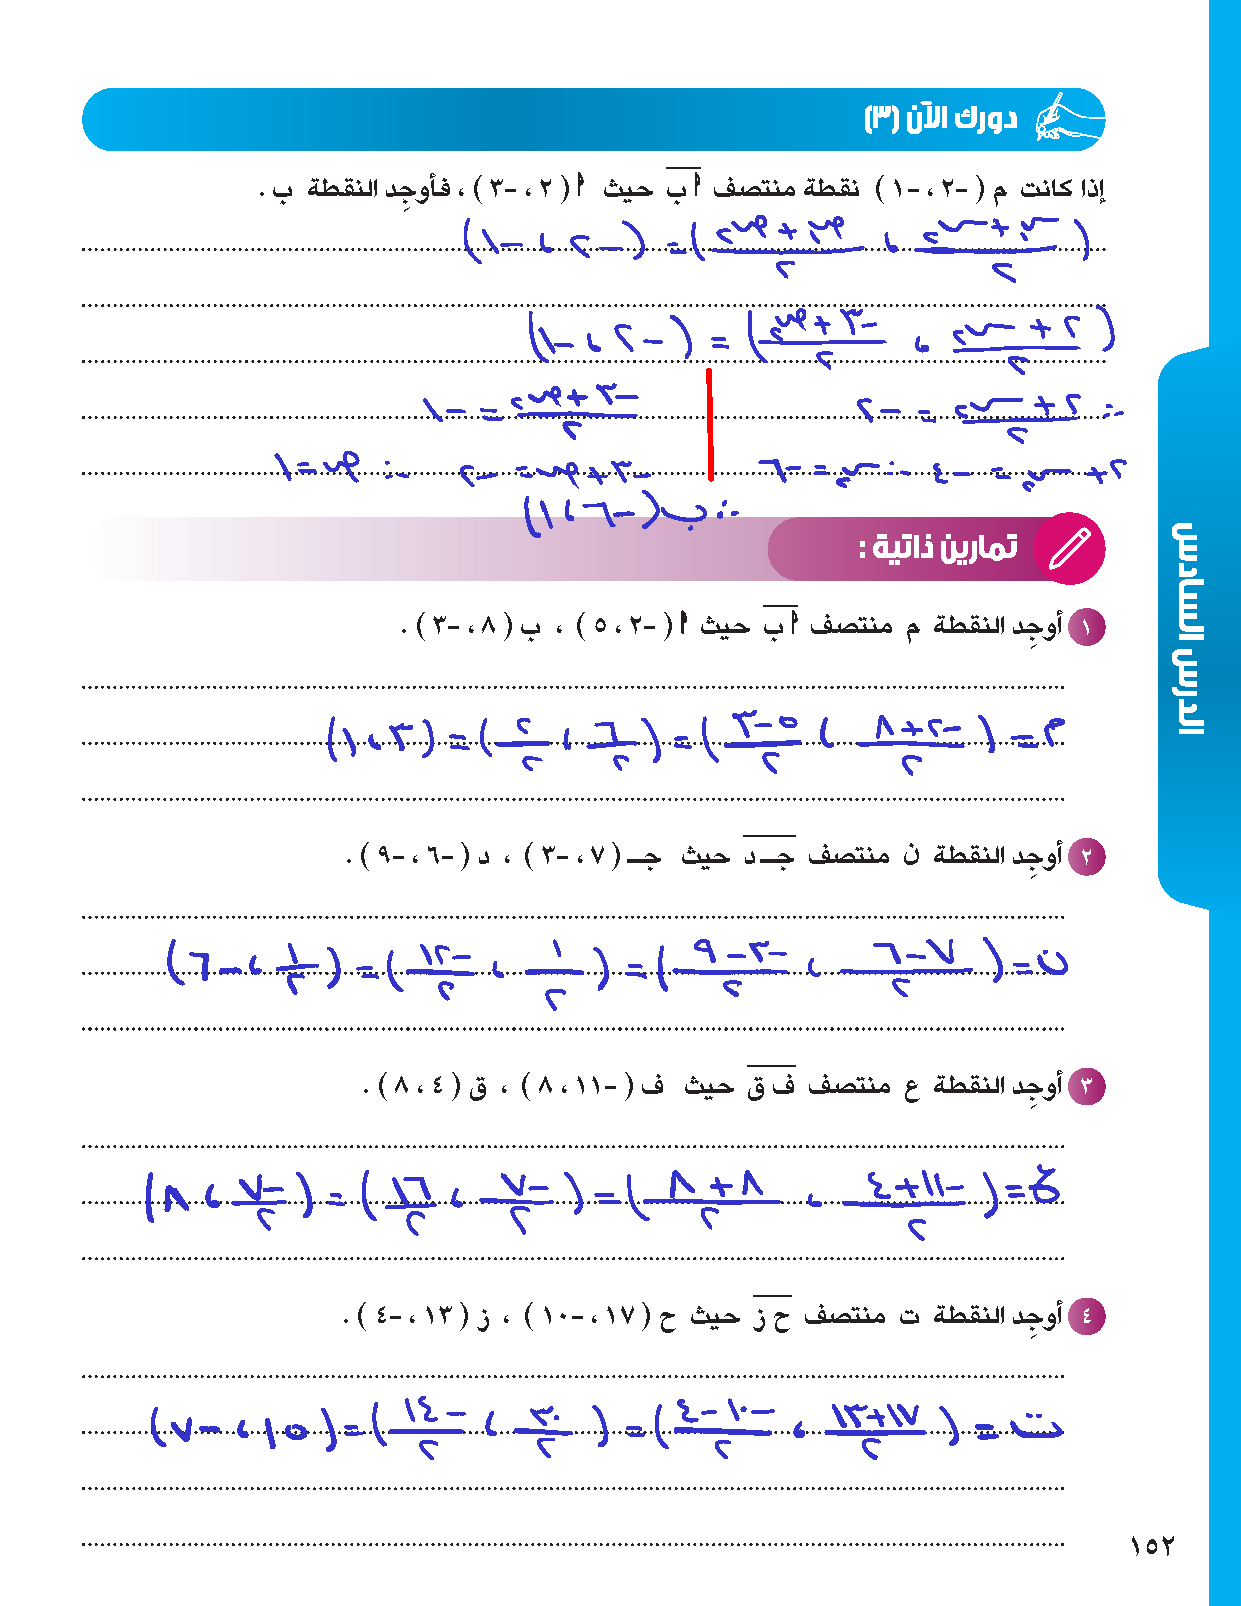 دورك الآن (٣)
إذا كانت م ( -٢ ، -١ ) نقطة منتصف أ ب حيث أ ( ٢ ، -٣ ) ، فأوجِد النقطة ب .
( (س١ + س٢)/٢ ، (ص١ + ص٢)/٢ ) = ( -٢ ، -١ )
( (٢ + س٢)/٢ ، (-٣ + ص٢)/٢ ) = ( -٢ ، -١ )
∴ (٢ + س٢)/٢ = -٢ (-٣ + ص٢)/٢ = -١
٢ + س٢ = -٤ ∴ س٢ = -٦ -٣ + ص٢ = -٢ ∴ ص = ١
∴ ب ( -٦ ، ١ )
تمارين ذاتية :
١ أوجِد النقطة م منتصف أ ب حيث أ ( -٢ ، ٥ ) ، ب ( ٨ ، -٣ ) .
م = ( (-٢ + ٨)/٢ ، (٥ - ٣)/٢ ) = ( ٦/٢ ، ٢/٢ ) = ( ٣ ، ١ )
٢ أوجِد النقطة ن منتصف جـ د حيث جـ ( ٧ ، -٣ ) ، د ( -٦ ، -٩ ) .
ن = ( (٧ - ٦)/٢ ، (-٣ - ٩)/٢ ) = ( ١/٢ ، -١٢/٢ ) = ( ١/٢ ، -٦ )
٣ أوجِد النقطة ع منتصف ف ق حيث ف ( -١١ ، ٨ ) ، ق ( ٤ ، ٨ ) .
ع = ( (-١١ + ٤)/٢ ، (٨ + ٨)/٢ ) = ( -٧/٢ ، ١٦/٢ ) = ( -٧/٢ ، ٨ )
٤ أوجِد النقطة ت منتصف ح ز حيث ح ( ١٧ ، -١٠ ) ، ز ( ١٣ ، -٤ ) .
ت = ( (١٧ + ١٣)/٢ ، (-١٠ - ٤)/٢ ) = ( ٣٠/٢ ، -١٤/٢ ) = ( ١٥ ، -٧ )
الدرس السادس
١٥٢